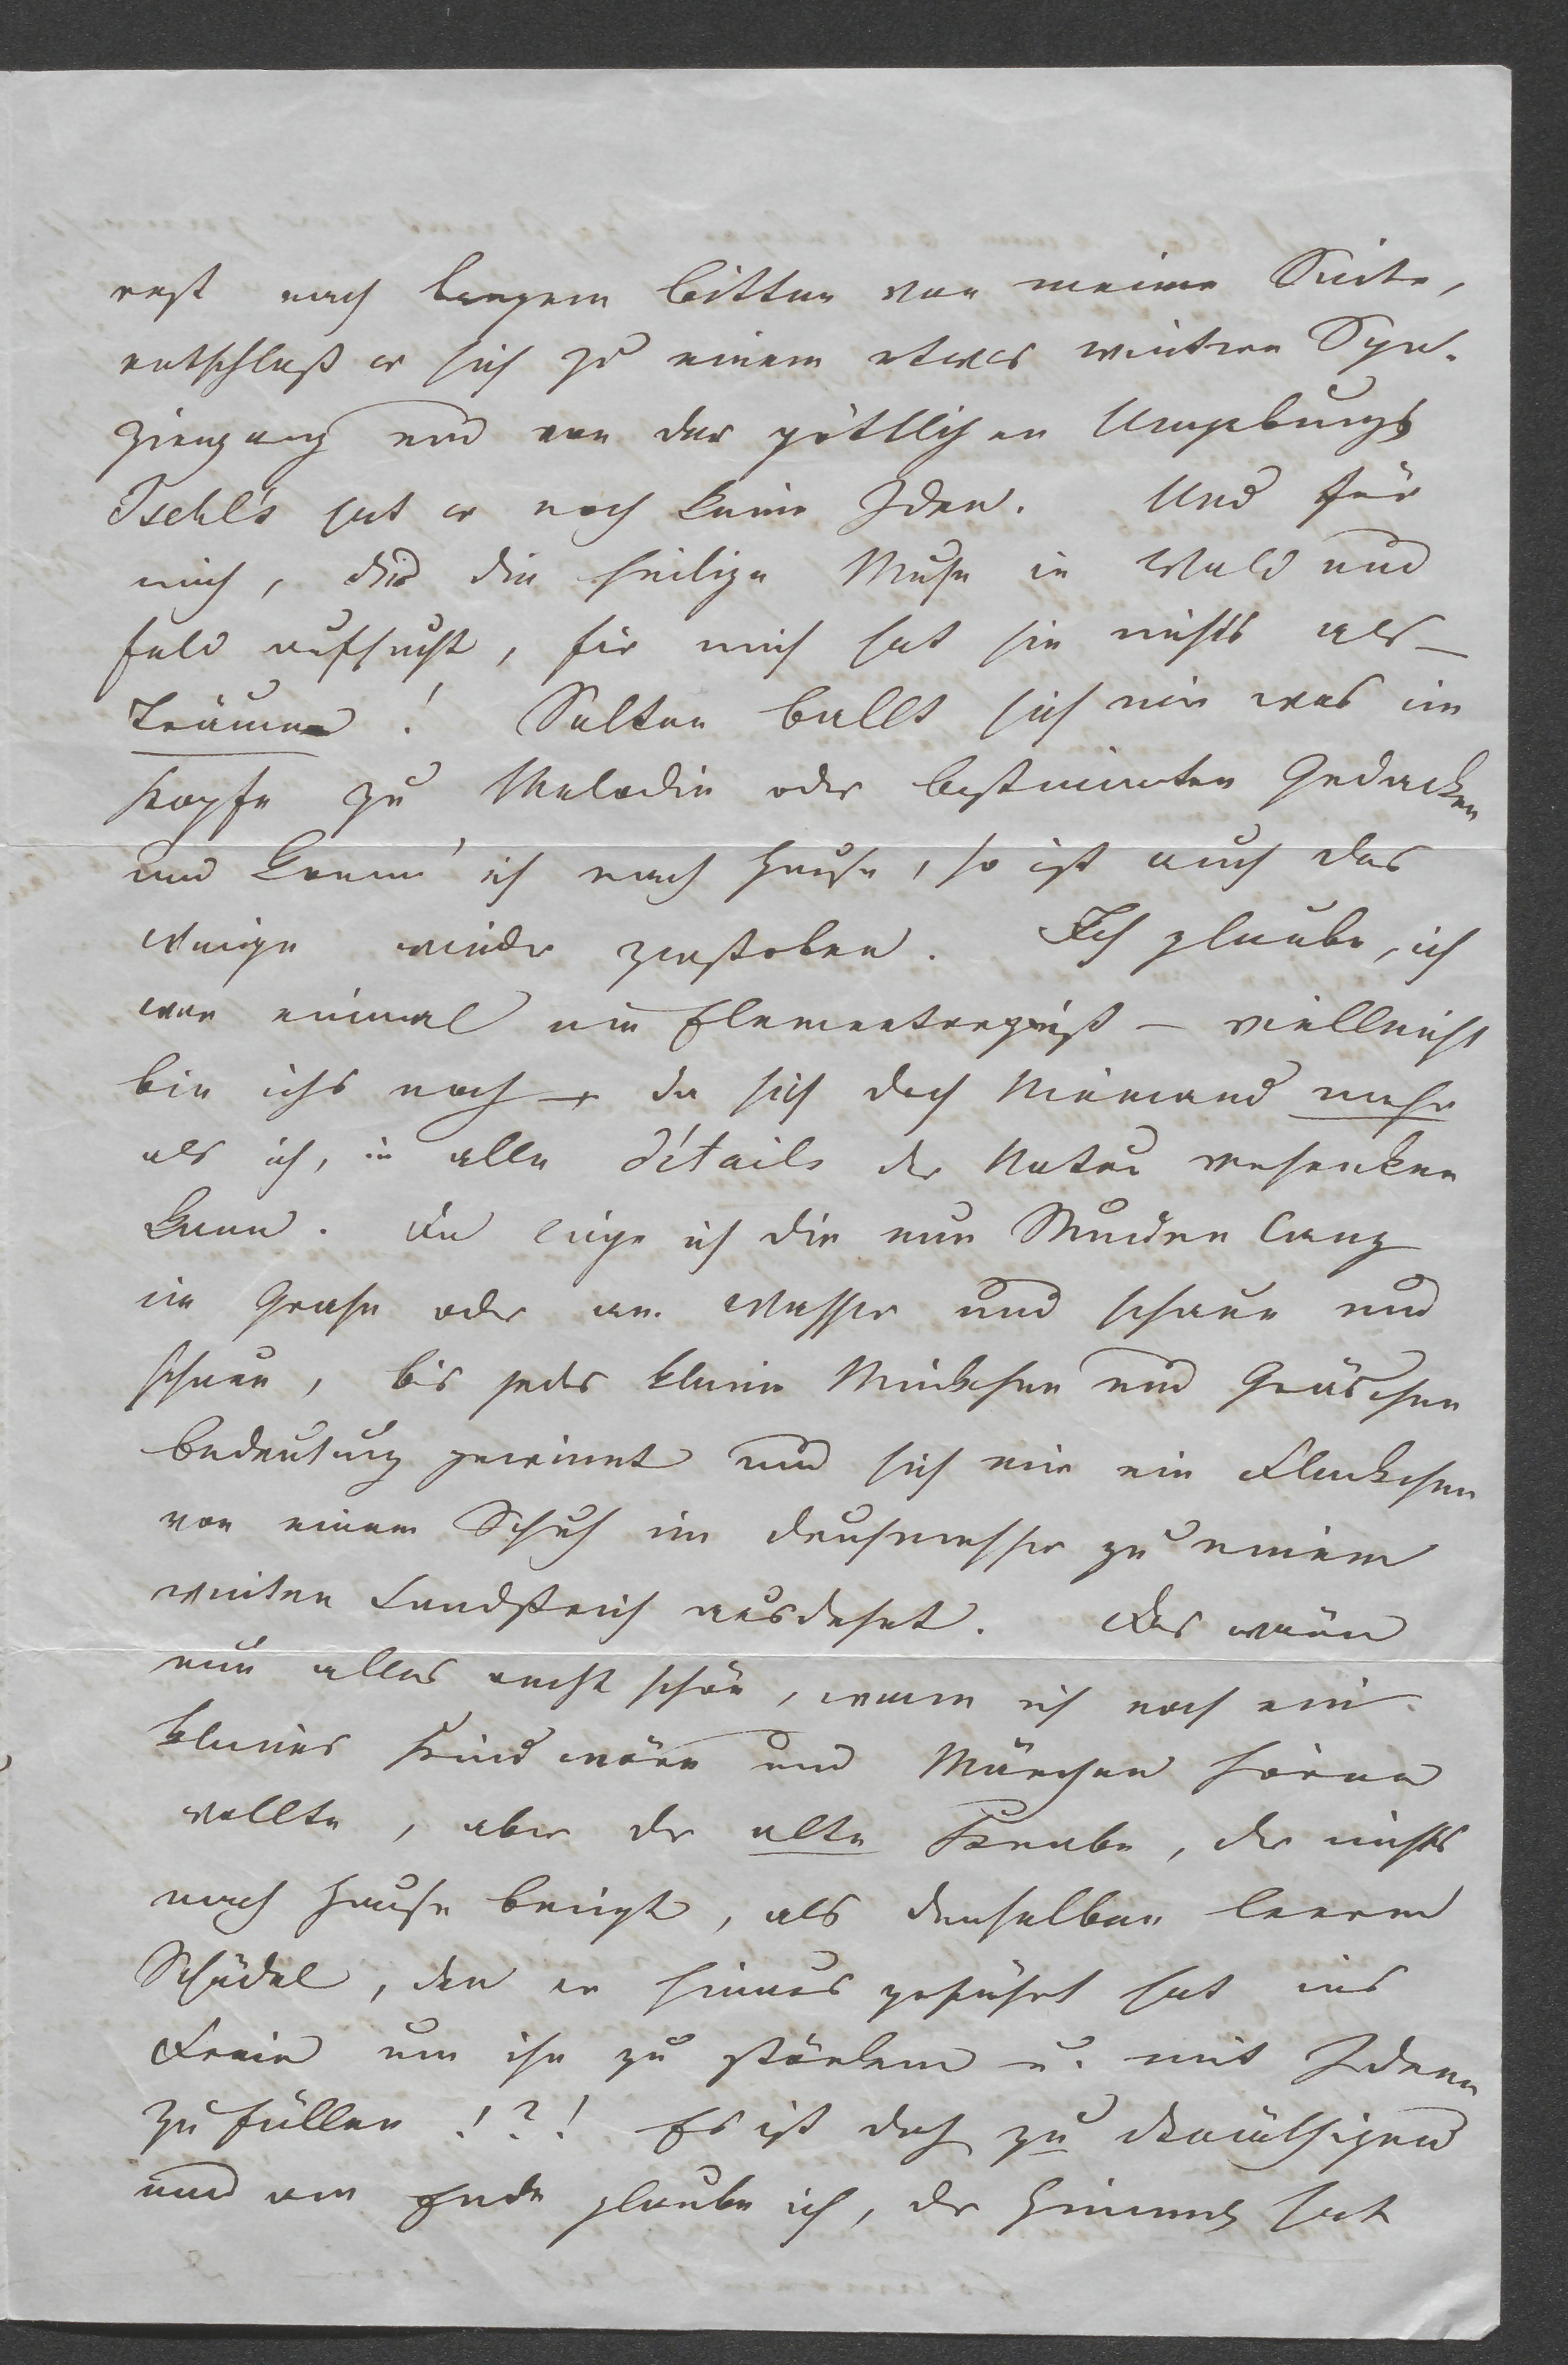 erst nach langem Bitten von meiner Seite,
entschloß er sich zu einem etwas weitern Spa-
ziergang und von der göttlichen Umgebungs
Ischl's hat er noch keine Idee. Und für
mich, die die heilige Muse in Wald und
Feld aufsucht, für mich hat sie nichts als –
Träume! Selten ballt sich mir was im
Kopfe zu Melodie oder bestimmten Gedanken
und komm' ich nach Hause, so ist auch das
Wenige wieder zerstoben. Ich glaube, ich
war einmal ein Elementargeist – vielleicht
bin ichs noch – da sich doch Niemand mehr
als ich, in alle détails der Natur versenken
kann. Da liege ich dir nun Stunden lang
im Grase oder am Wasser und schaue und
schaue, bis jedes kleine Mückchen und Gräschen
Bedeutung gewinnt und sich mir ein Fleckchen
von einem Schuh im Durchmesser zu einem
weiten Landstrich ausdehnt. Das wäre
nun alles recht schön, wenn ich noch ein
kleines Kind wäre und Märchen hören
wollte, aber der alte Knabe, der nichts
nach Hause bringt, als denselben leeren
Schädel, den er hinaus geführt hat ins
Freie um ihn zu stärken u. mit Ideen
zu füllen!?! Es ist doch zu demüthigend
und am Ende glaube ich, der Himmel hat